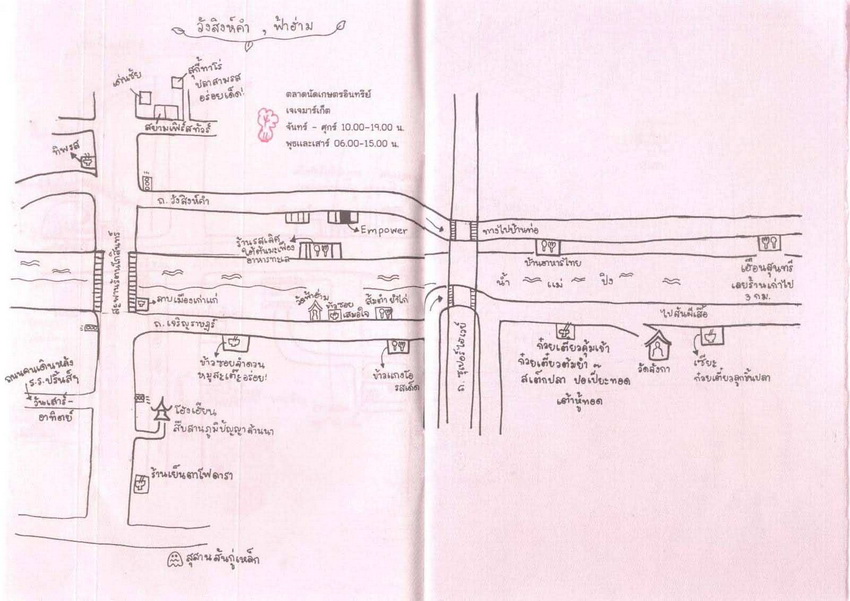 วังสิงห์คำ , ฟ้าฮ่าม
เด่นชัย
สุกี้ทาโร่
ปลาสามรส
อร่อยเด็ด!
สยามเฟิร์สทัวร์
ทิพรส
ตลาดนัดเกษตรอินทรีย์
เจเจมาร์เก็ต
จันทร์ - ศุกร์ 10.00-19.00 น.
พุธและเสาร์ 06.00-15.00 น.
ถ. วังสิงห์คำ
Empower
ร้านรสเลิศ
ใต้ต้นมะเฟือง
อาหารทะเล
ทางไปบ้านท่อ
บ้านอาหารไทย
เฮือนสุนทรี
เลยร้านเก่าไป
3 กม.
สะพานรัตนโกสินทร์
น้ำ แม่ ปิง
ลาบเมืองเก่าแก่
วัดฟ้าฮ่าม
ข้าวซอย
เสมอใจ
ส้มตำ ยำไก่
ถ. เจริญราษฎร์
ข้าวซอยลำดวน
หมูสะเต๊ะอร่อย!
ข้าวแกงโอ
รสเด็ด
ถ. ซุปเปอร์ไฮเวย์
ไปสันผีเสื้อ
ก๋วยเตี๋ยวคุ้มเจ้า
ก๋วยเตี๋ยวต้มยำ
สเต็กปลา ปอเปี๊ยะทอด
เต้าหู้ทอด
วัดลังกา
เซี๊ยะ
ก๋วยเตี๋ยวลูกชิ้นปลา
ถนนคนเดินหลัง
ร.ร.ปริ้นส์ฯ
วันเสาร์-
อาทิตย์
โฮงเฮียน
สืบสานภูมิปัญญาล้านนา
ร้านเย็นตาโฟดารา
สุสานสันกู่เหล็ก